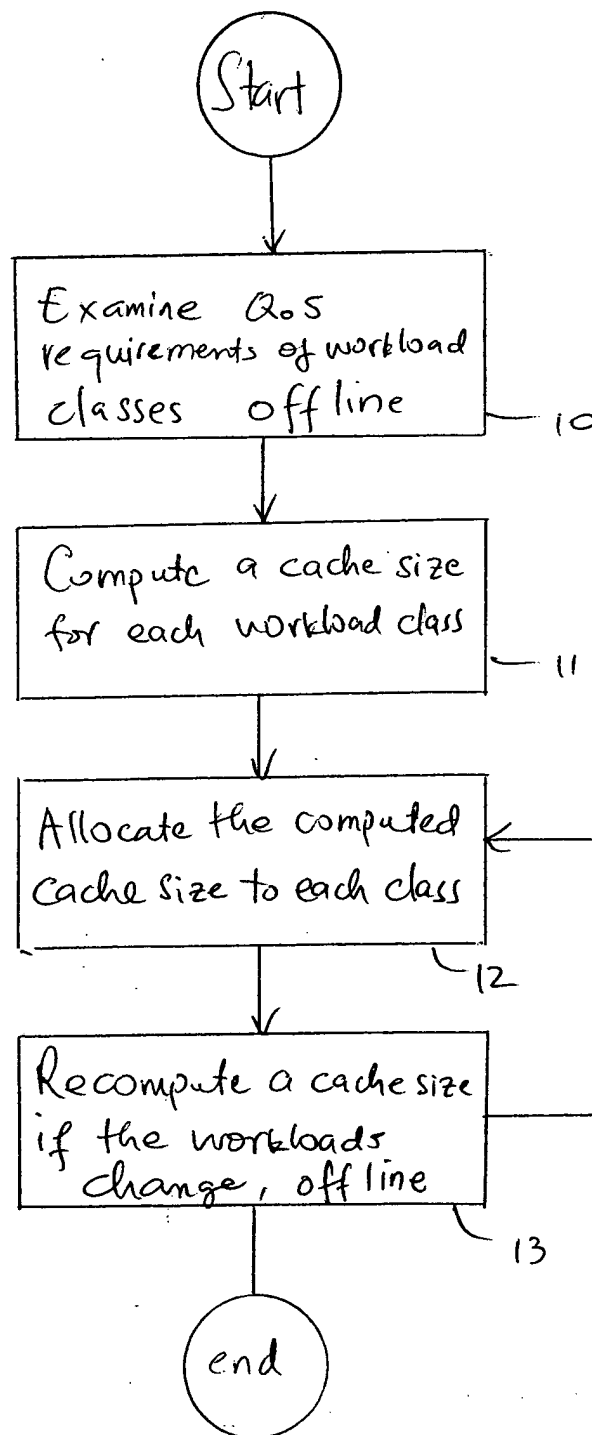 Start
Examine QoS
requirements of workload
classes offline
10
Compute a cache size
for each workload class
11
Allocate the computed
cache size to each class
12
Recompute a cache size
if the workloads
change, offline
13
end